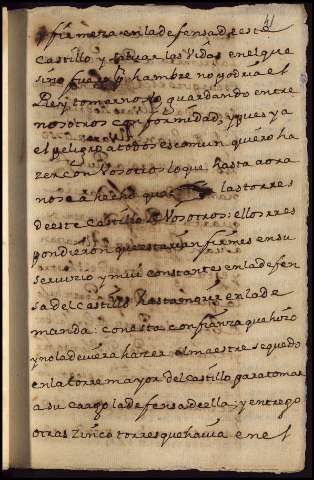 41
firmeza en la defensa de este
Castillo y [...] las Vidas en el que
sino fuere p.r hambre no podria el
Rey tomarnoslo guardando entre
nosotros conformidad, y pues ya
el peligro a todos es comun quiero ha
zer con Vosotros lo que hasta aora
no se a hecho que las torres
de este Castillo Vosotros: ellos rres
pondieron que estarian firmes en su
servizio y mui constantes en la defen
sa del castillo hasta en la de
manda: con esta confianza que hizo
y no la deviera hazer el maestre se quedo
en la torre mayor del castillo para tomar
a su cargo la defensa de ella; y entrego
otras zinco torres que havia en el